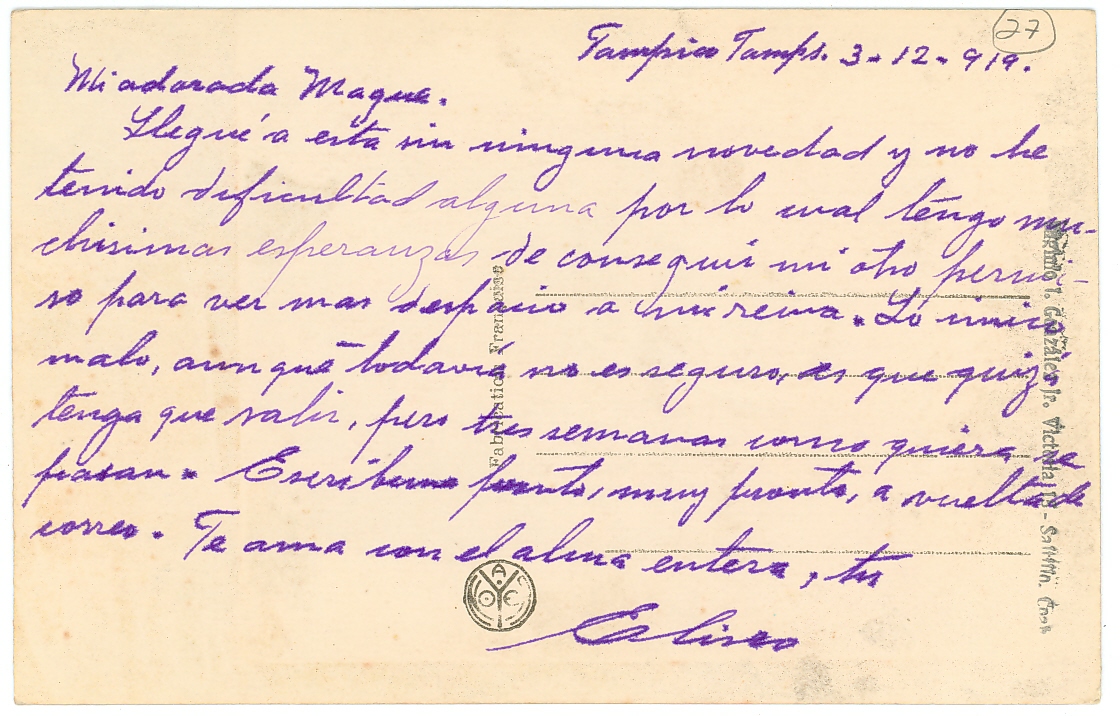 27
Tampico Tamps. 3-12-919.
Mi adorada Maque.
Llegué a esta sin ninguna novedad y no he
tenido dificultad alguna por lo cual tengo mu-
chisimas esperanzas de conseguir mi otro permi-
so para ver mas despacio a mi reina. Lo único
malo, aunque todavía no es seguro, es que quizá
tenga que salir, pero tres semanas como quiera se
pasan. Escribeme pronto, muy pronto, a vuelta de
correo. Te ama con el alma entera, tu
Eliseo
Fabrication Française
González Jr. Victoria